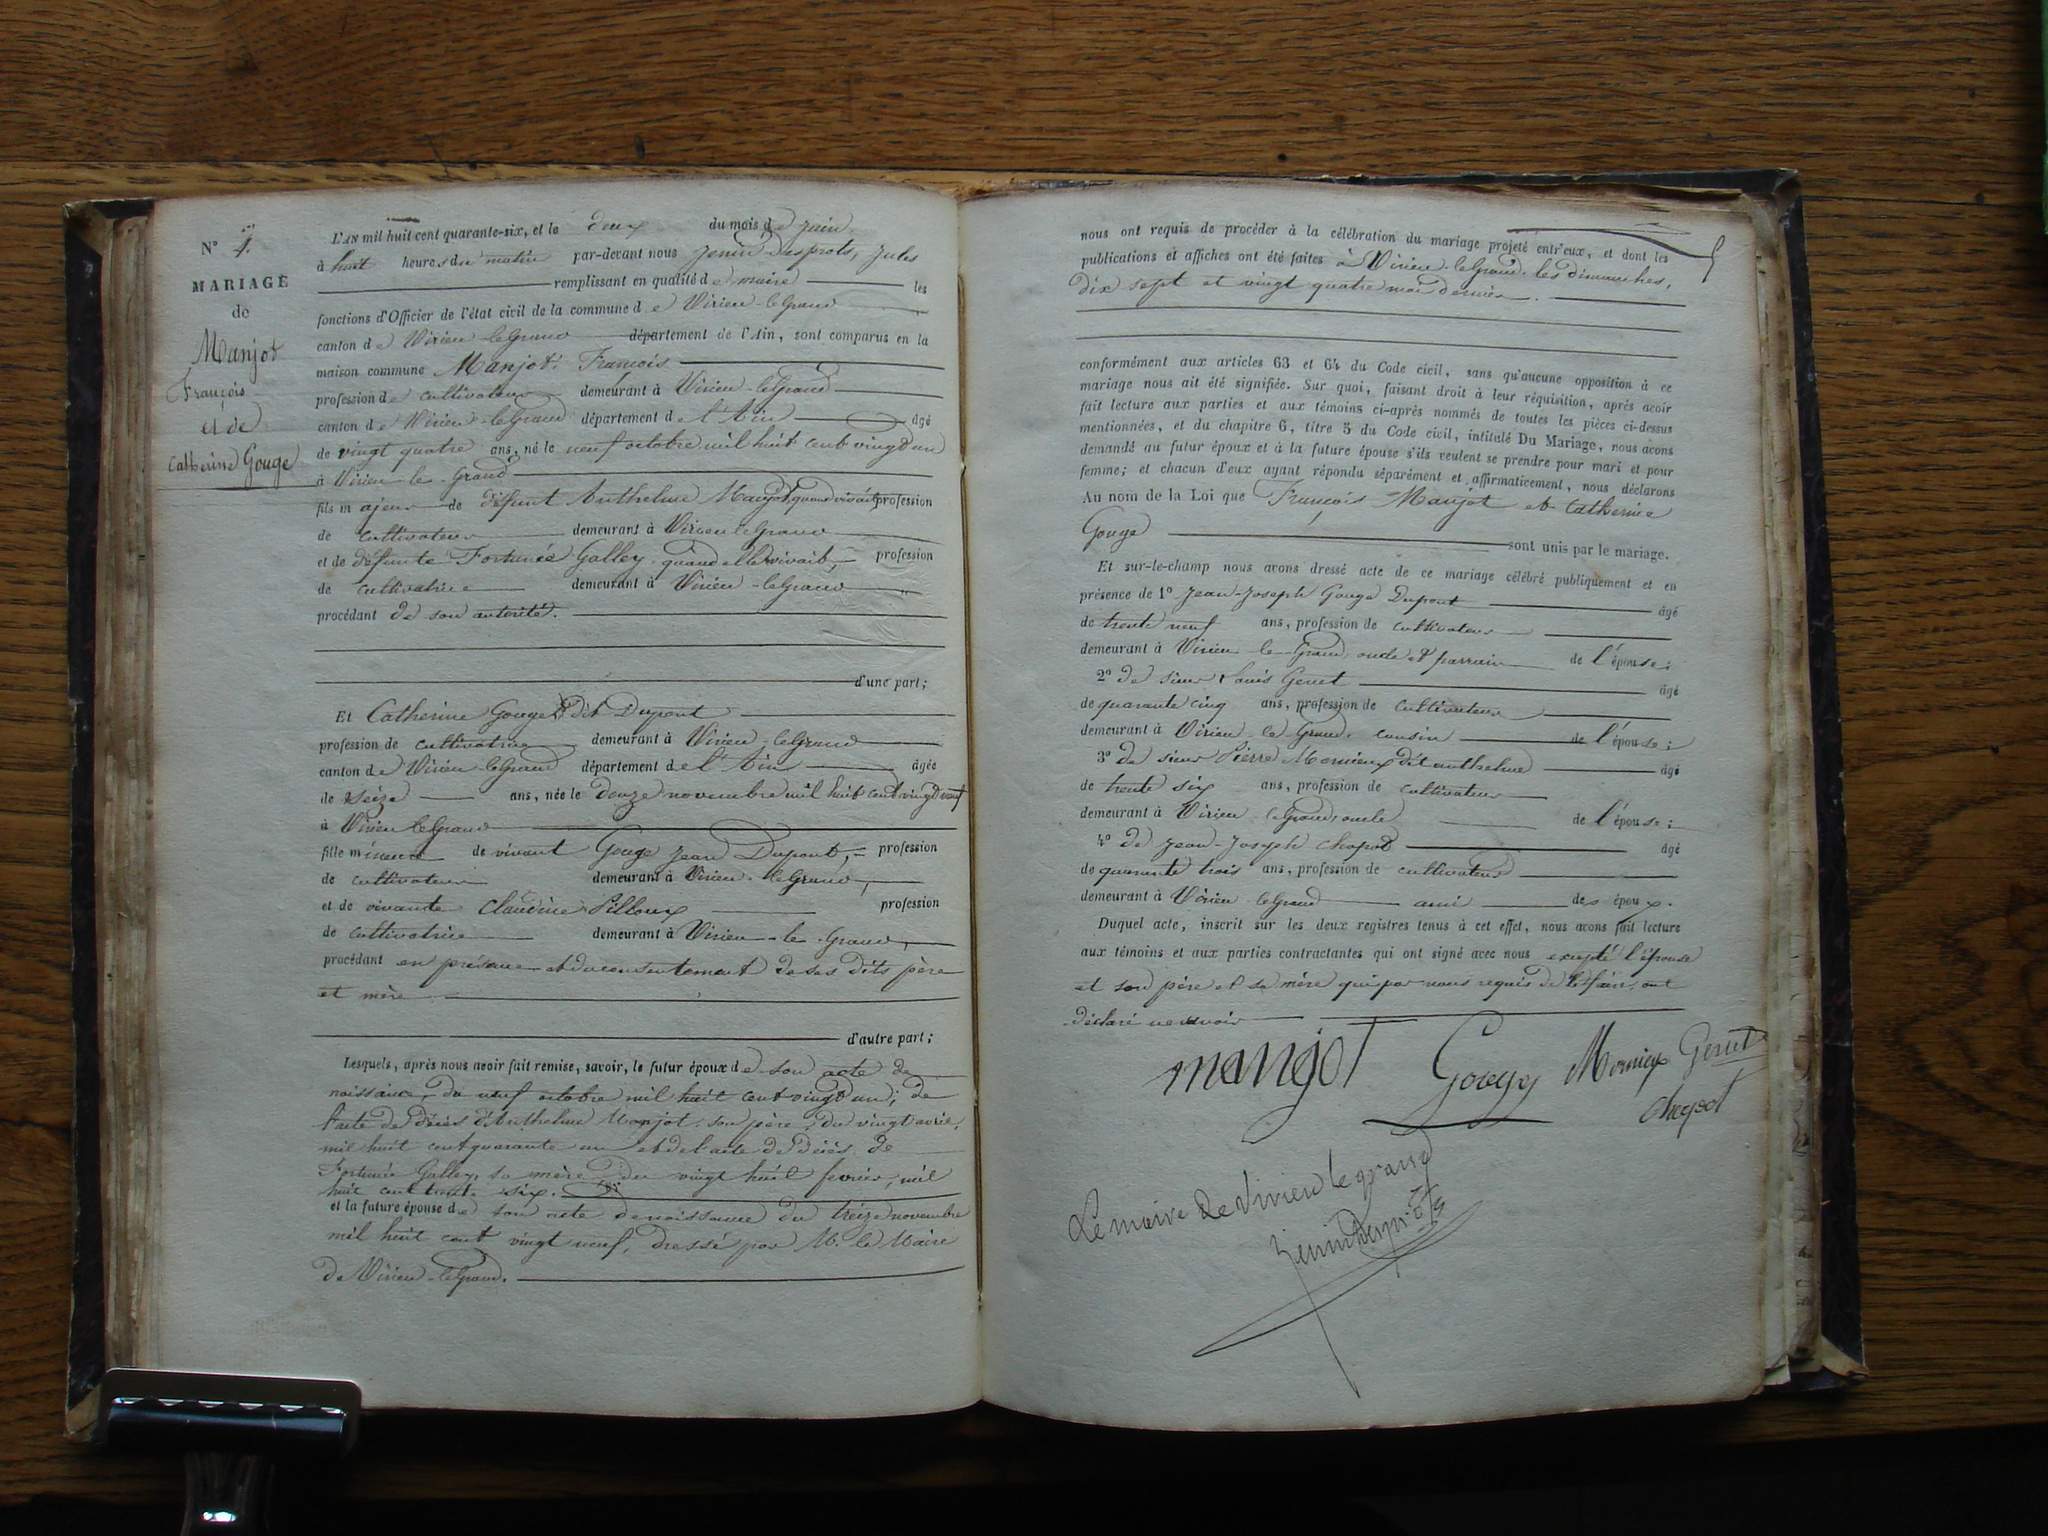 N° 4.
MARIAGE
de
Manjot
François
et de
Catherine Gouge
L'AN mil huit cent quarante-six, et le deux du mois de juin
à huit heures du matin par-devant nous Jenin Desprots, Jules
remplissant en qualité de maire les
fonctions d'Officier de l'état civil de la commune de Virieu-le Grand
canton de Virieu le Grand département de l'Ain, sont comparus en la
maison commune Manjot François
profession de cultivateur demeurant à Virieu-le Grand
canton de Virieu-le Grand département de l'Ain âgé
de vingt quatre ans, né le neuf octobre mil huit cent vingt un
à Virieu-le-Grand
fils majeur de défunt Anthelme Manjot, quand vivait, profession
de cultivateur demeurant à Virieu le Grand
et de défunte Fortunée Galley quand elle vivait, profession
de cultivatrice demeurant à Virieu-le Grand
procédant de son autorité.
d'une part;
Et Catherine Gouge dit Dupont
profession de cultivatrice demeurant à Virieu-le Grand
canton de Virieu-le Grand département de l'Ain âgée
de seize ans, née le douze novembre mil huit cent vingt neuf
à Virieu le Grand
fille mineure de vivant Gouge Jean Dupont, profession
de cultivateur demeurant à Virieu-le Grand,
et de vivante Claudine Pilloux profession
de cultivatrice demeurant à Virieu-le-Grand,
procédant en présence et du consentement de ses dits père
et mère
d'autre part;
Lesquels, après nous avoir fait remise, savoir, le futur époux de son acte de
naissance, du neuf octobre mil huit cent vingt un; de
l'acte de décès d'Anthelme Manjot son père, du vingt avril,
mil huit cent quarante un et de l'acte de décès de
Fortunée Galley, sa mère du vingt huit fevrier, mil
huit cent trente six.
et la future épouse de son acte de naissance du treize novembre
mil huit cent vingt neuf, dressé par M. le Maire
de Virieu-le Grand.
nous ont requis de procéder à la célébration du mariage projeté entr'eux, et dont les
publications et affiches ont été faites à Virieu-le Grand les dimanches,
dix sept et vingt quatre mai dernier.
conformément aux articles 63 et 64 du Code civil, sans qu'aucune opposition à ce
mariage nous ait été signifiée. Sur quoi, faisant droit à leur réquisition, après avoir
fait lecture aux parties et aux témoins ci-après nommés de toutes les pièces ci-dessus
mentionnées, et du chapitre 6, titre 5 du Code civil, intitulé Du Mariage, nous avons
demandé au futur époux et à la future épouse s'ils veulent se prendre pour mari et pour
femme; et chacun d'eux ayant répondu séparément et affirmativement, nous déclarons
Au nom de la Loi que François Manjot et Catherine
Gouge sont unis par le mariage.
Et sur-le-champ nous avons dressé acte de ce mariage célébré publiquement et en
présence de 1° Jean-Joseph Gouge Dupont âgé
de trente neuf ans, profession de cultivateur
demeurant à Virieu le Grand, oncle et parrain de l'épouse;
2° de sieur Louis Genet âgé
de quarante cinq ans, profession de cultivateur
demeurant à Virieu-le Grand, cousin de l'épouse;
3° de sieur Pierre Mornieux dit anthelme âgé
de trente six ans, profession de cultivateur
demeurant à Virieu le Grand, oncle de l'épouse;
4° de Jean-Joseph Chapot âgé
de quarante trois ans, profession de cultivateur
demeurant à Virieu le Grand ami des époux.
Duquel acte, inscrit sur les deux registres tenus à cet effet, nous avons fait lecture
aux témoins et aux parties contractantes qui ont signé avec nous excepté l'épouse
et son père et sa mère qui par nous requis de le faire, ont
déclaré ne savoir
manjot Gouge Mornieux Genet
Chapot
Le maire de Virieu le grand
Jenin Desprots